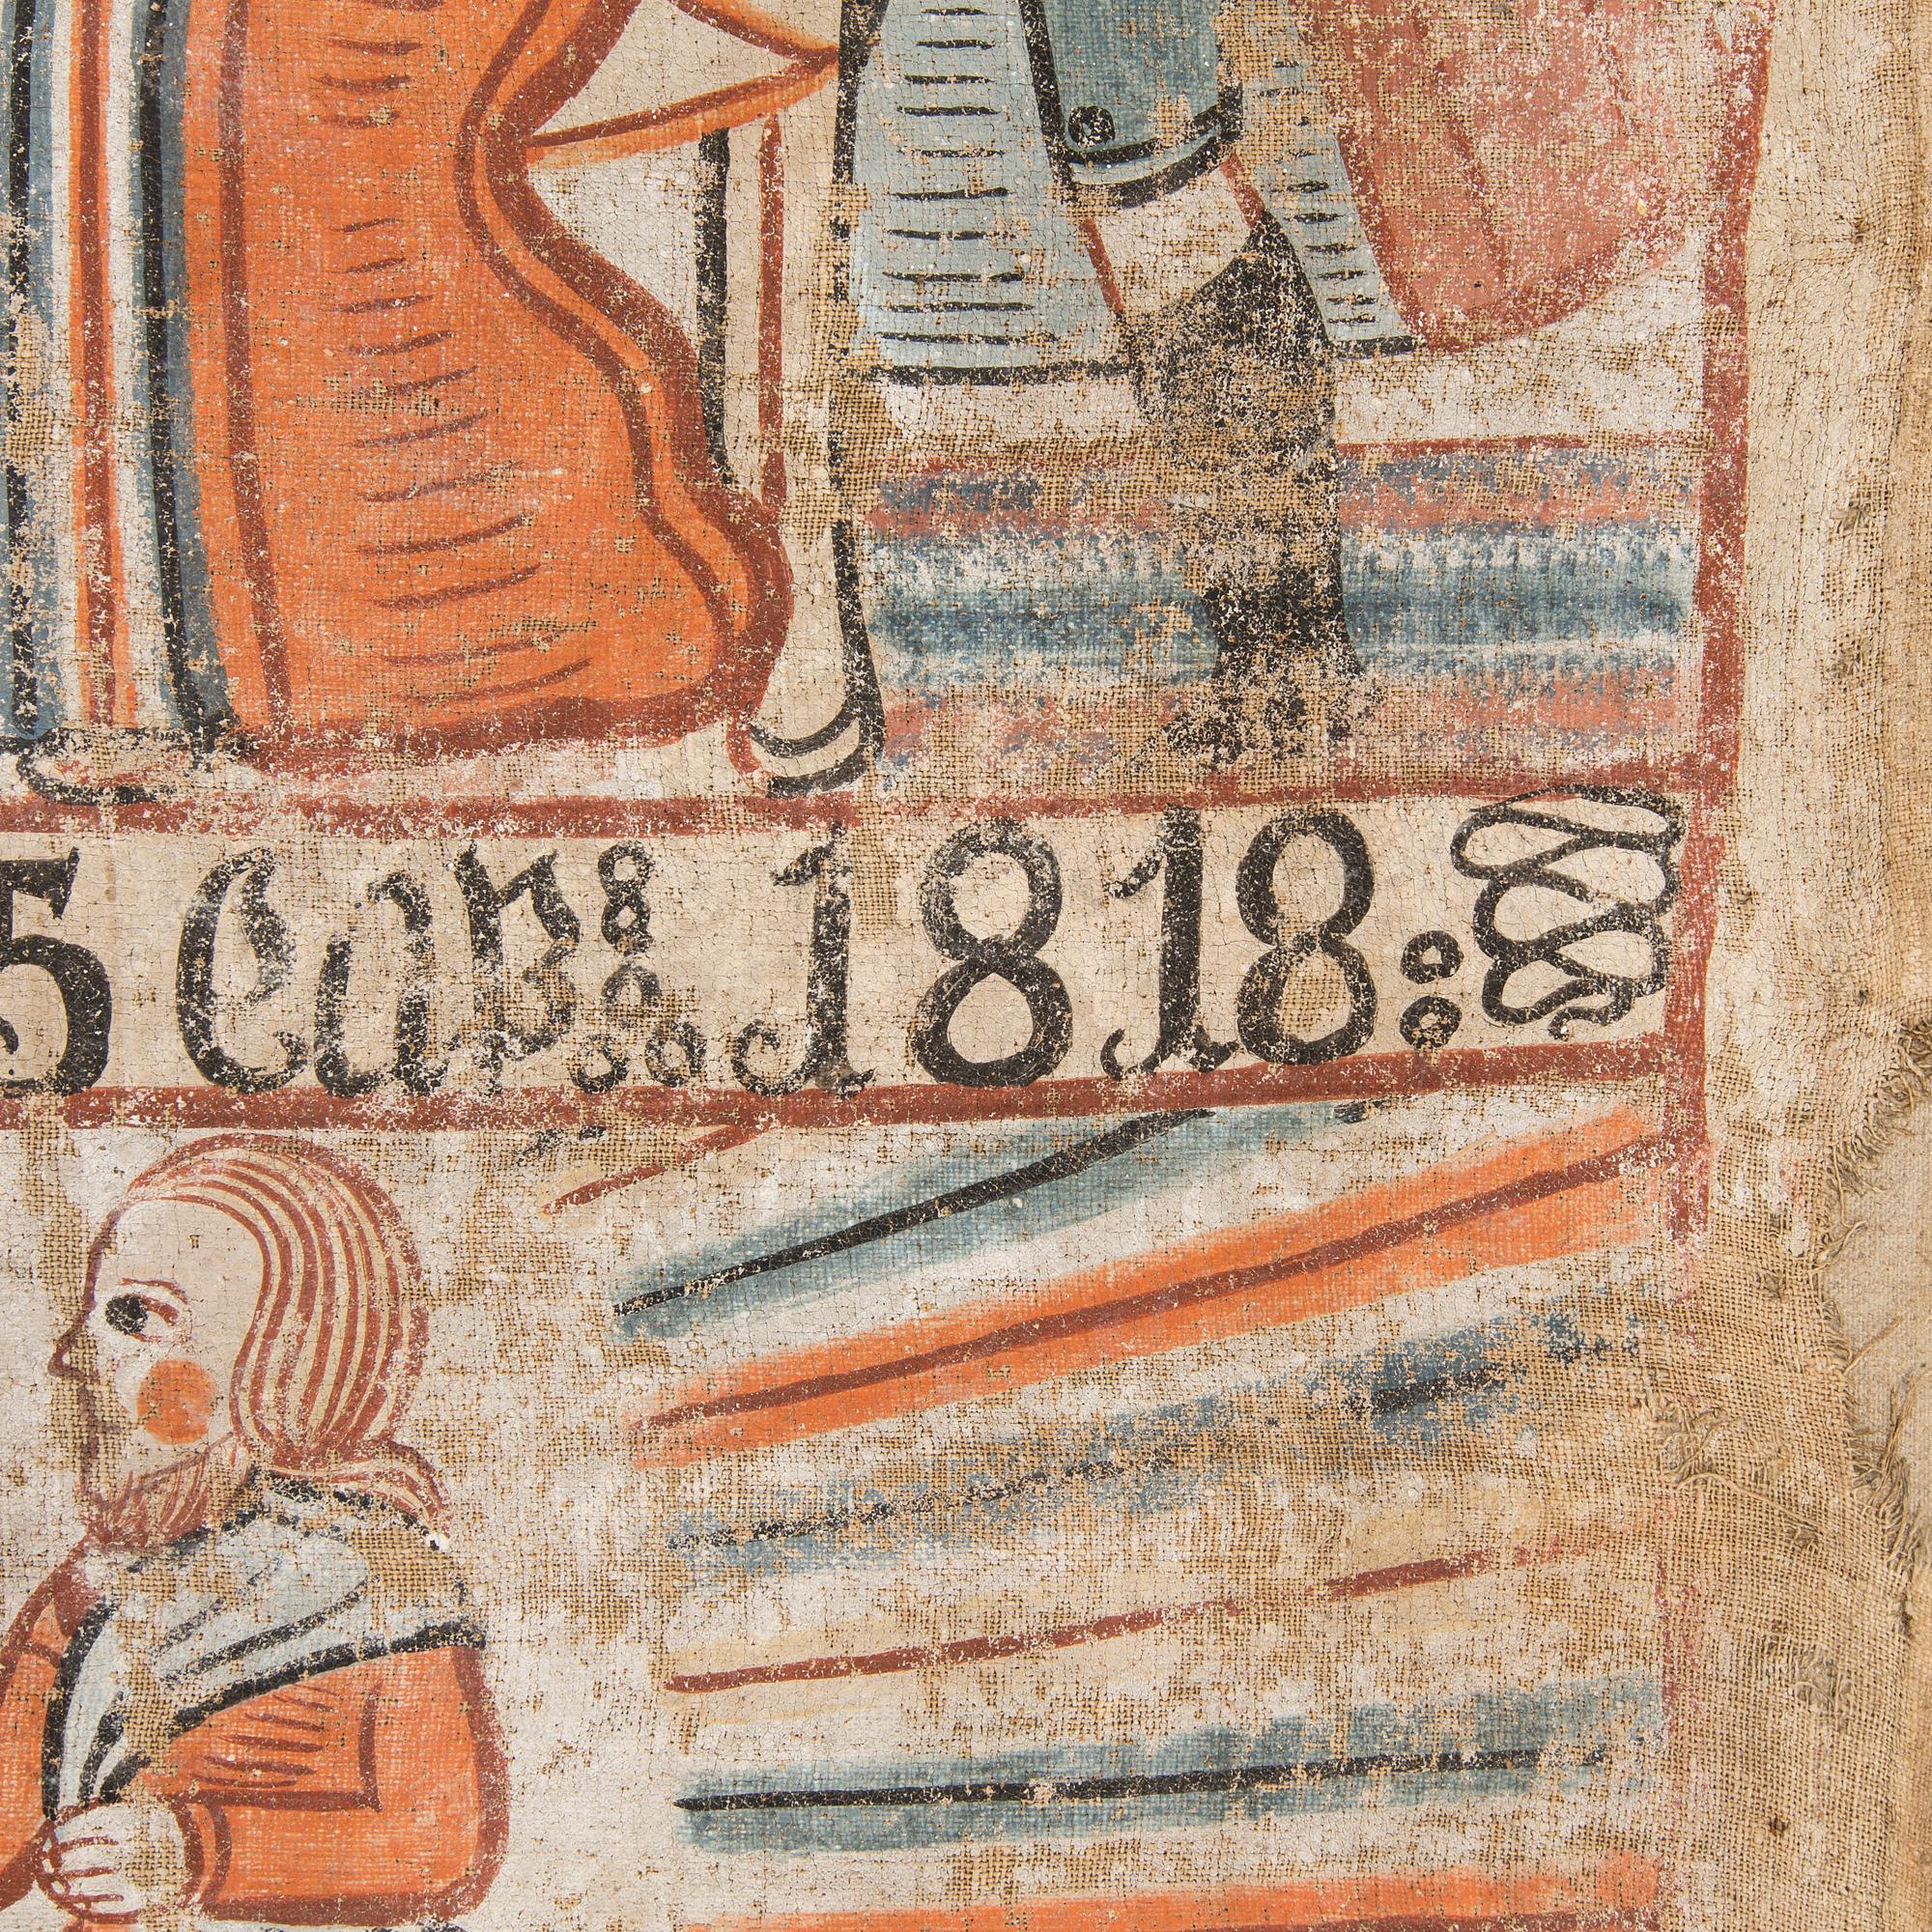 5 Cap: 1818: